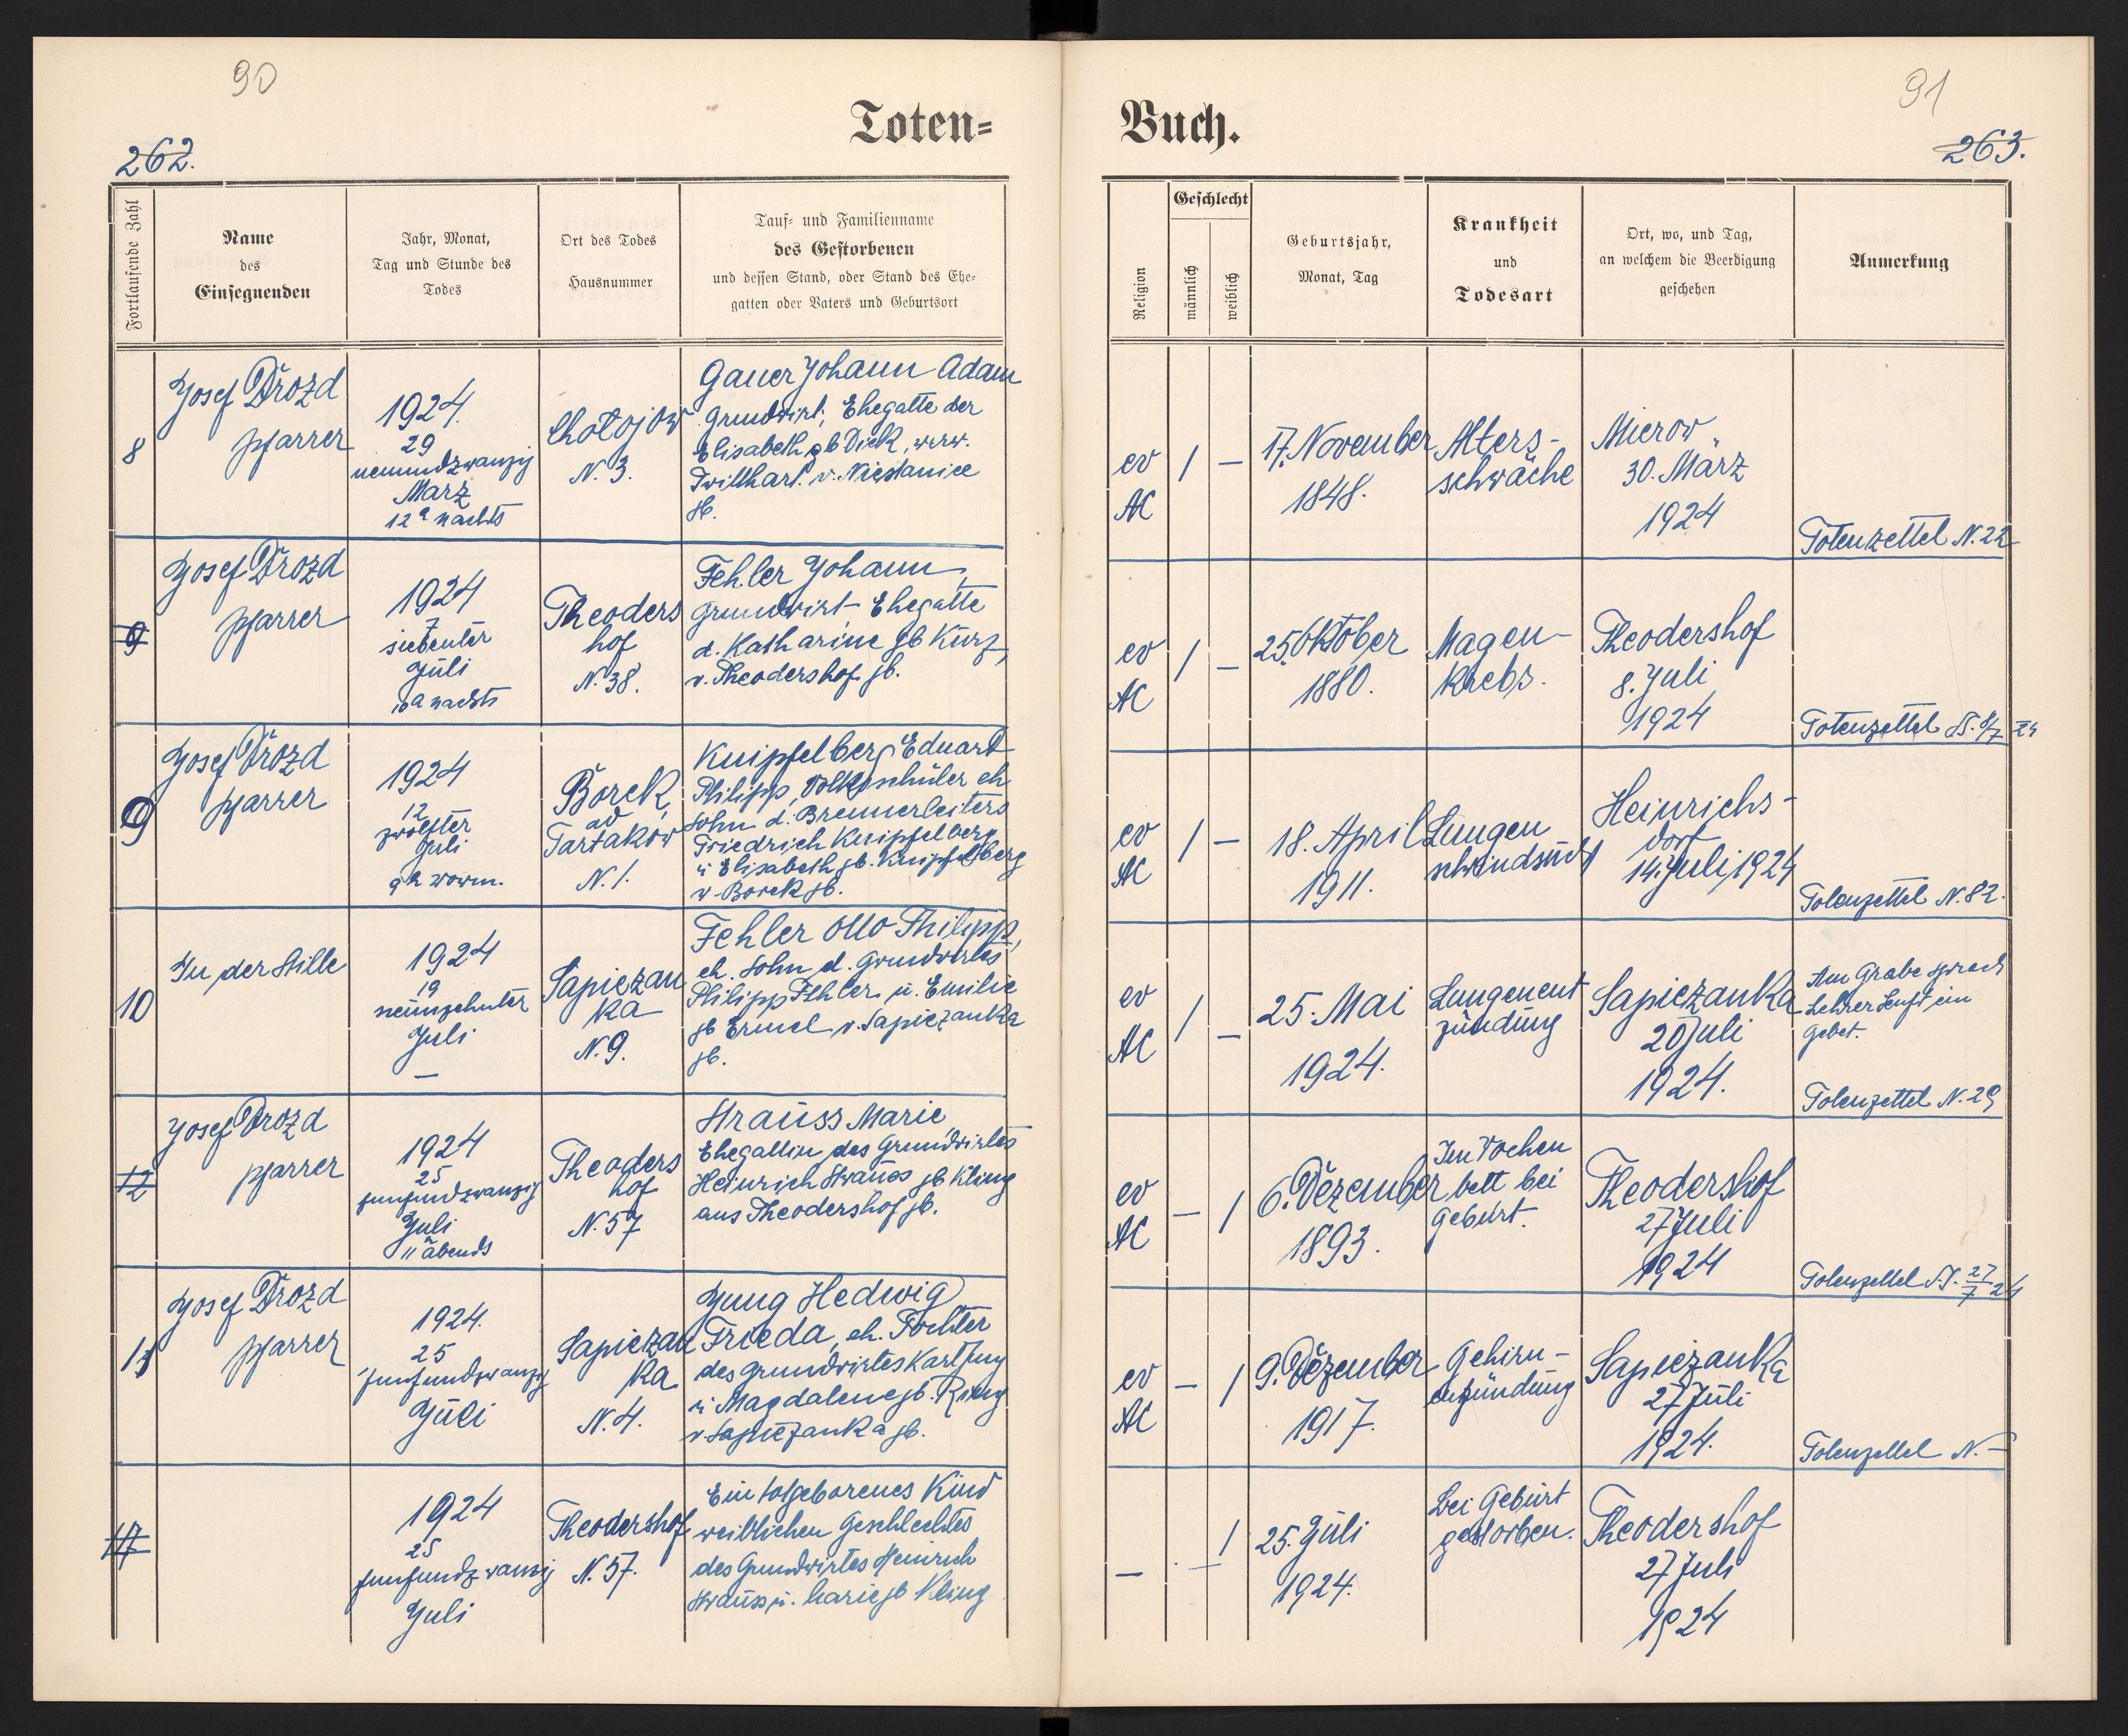 90
Toten-
262.
Fortlaufende Zahl
Name
des
Einsegnenden
Jahr, Monat,
Tag und Stunde des
Todes
Ort des Todes
Hausnummer
Tauf- und Familienname
des Gestorbenen
und dessen Stand, oder Stand des Ehe-
gatten oder Vaters und Geburtsort
8
Josef Drozd
Pfarrer
1924.
29
neunundzwanzig
März
12 nachts
Chotojow
N. 3.
Gauer Johann Adam
Grundwirt, Ehegatte der
Elisabeth gb Dick, werw.
v. Niestanice
gb.
9
Josef Drozd
Pfarrer
1924
7
siebenter
Juli
nachts
Theoders
hof
N. 38.
Fehler Johann,
Grundwirt Ehegatte
d. Katharine gb Kurz,
v. Theodershof gb.
9
Josef Drozd
Pfarrer
1924
12
zwölfter
Juli
9h vorm.
Borek,
ad
Tartakow
N. 1.
Knipfelberg Eduart
Philipp, Volksschüler eh
Sohn d. Brennerleiters
Friedrich Knipfelberg
u Elisabeth gb. Knipfelberg
v Borek gb.
10
In der Stille
1924
19
neunzehnter
Juli
—
Sapiezan
ka
N. 9.
Fehler Otto Philipp,
eh. Sohn d. Grundwirtes
Philipp Fehler u. Emilie
gb Ermel v. Sapiezanka
gb.
12
Josef Drozd
Pfarrer
1924
25
funfundzwanzig
Juli
11 abends
Theoders
hof
N. 57
Strauss Marie
Ehegattin des Grundwirtes
Heinrich Strauss gb Kling
aus Theodershof gb.
Josef Drozd
Pfarrer
1924.
25
funfundzwanzig
Juli
Sapiezan
ka
N. 4.
Jung Hedwig
Frieda, eh. Tochter
des Grundwirtes Karl Jung
u Magdalene gb.
v. Sapiezanka gb.
1924
25
funfundzwanzig
Juli
Theodershof
N. 57.
Ein totgeborenes Kind
weiblichen Geschlechtes
des Grundwirtes Heinrich
Strauss u. Marie gb Kling
91
Buch.
263.
Religion
Geschlecht
männlich
weiblich
Geburtsjahr,
Monat, Tag
Krankheit
und
Todesart
Ort, wo, und Tag,
an welchem die Beerdigung
geschehen
Anmerkung
ev
AC
/
—
17. November
1848.
Alters-
schwäche
Mierow
30. März
1924
Totenzettel N. 22
ev
AC
/
—
25. Oktober
1880.
Magen-
krebs.
Theodershof
8. Juli
1924
Totenzettel
ev
AC
/
—
18. April
1911.
Lungen
schwindsucht
Heinrichs-
dorf
14. Juli 1924
Totenzettel N. 82.
ev
AC
/
—
25. Mai
1924.
Lungenent
zündung
Sapiezanka
20 Juli
1924.
Am Grabe sprach
Lehrer Senft ein
Gebet.
Totenzettel N. 29
ev
AC
—
/
6. Dezember
1893.
Im Wochen
bett bei
Geburt.
Theodershof
27 Juli
1924
Totenzettel
ev
AC
—
/
9. Dezember
1917.
Gehirn-
entzündung
Sapiezanka
27 Juli
1924.
Totenzettel N. —
—
—
/
25. Juli
1924.
bei Geburt
gestorben.
Theodershof
27 Juli
1924